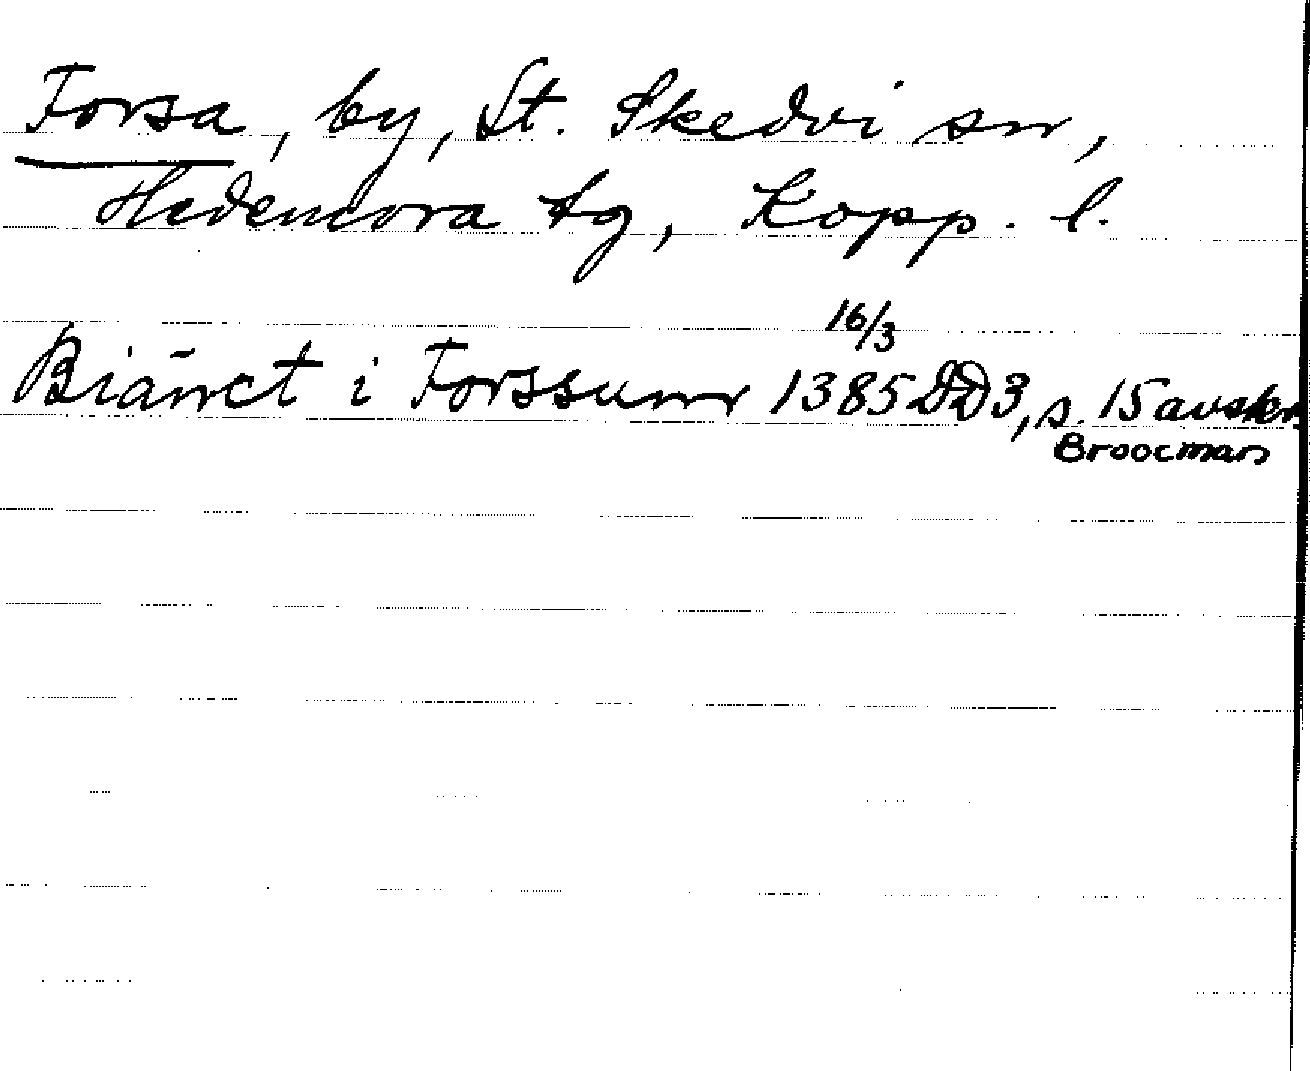 Forsa, by, St. Skedvi sn,
Hedemora tg, Kopp. l.
16/3
Biänct i Forssum 1385 DD 3, s. 15 avskr.
Broocman